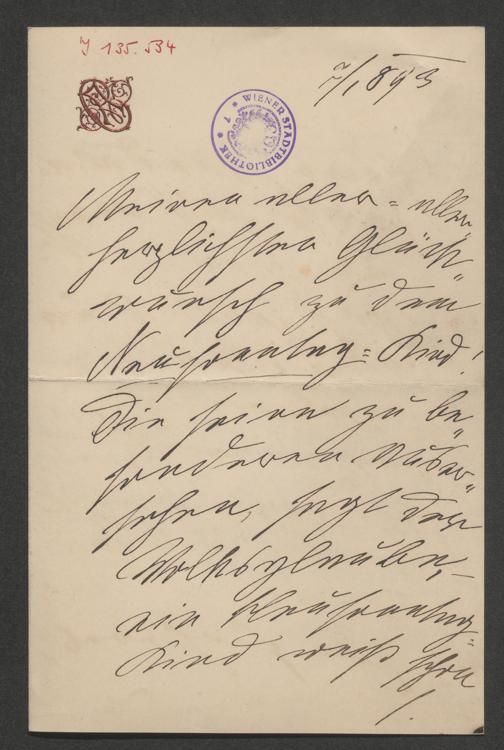 J 135.534
7/I 893
WIENER STADTBIBLIOTHEK
Meinen aller= aller
herzlichsten Glück
wunsch zu dem
Neusonntag= Kind!
Die seien zu be
sonderen Auser
sehen, sagt der
Volksglaube, –
ein Neusonntag=
Kind weiß schon
!